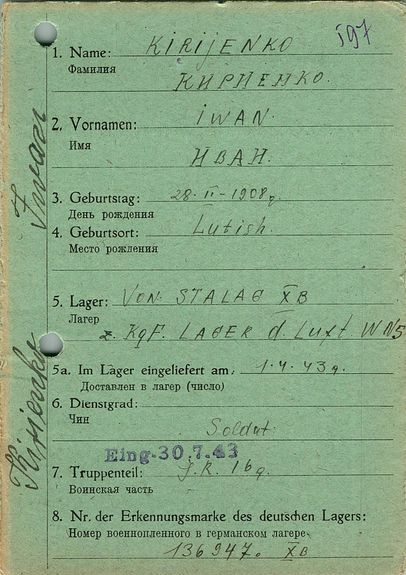 597
1. Name: KIRIJENKO
Фамилия
КИРІЕНКО.
2. Vornamen: IWAN.
Имя
ИВАН.
3. Geburtstag: 28-II-1908g.
День рождения
4. Geburtsort: Lutish.
Место рождения
5. Lager: VON STALAG XB
Лагер
z. KgF. LAGER d. Luft. W N5
5a. Im Lager eingeliefert am: 1.4.43g.
Доставлен в лагер (число)
6. Dienstgrad:
Чин
Soldat.
Eing-30.7.43
7. Truppenteil: J.R. 169.
Воинская часть
8. Nr. der Erkennungsmarke des deutschen Lagers:
Номер военнопленного в германском лагере
136947. XB
Kirijenko Iwan